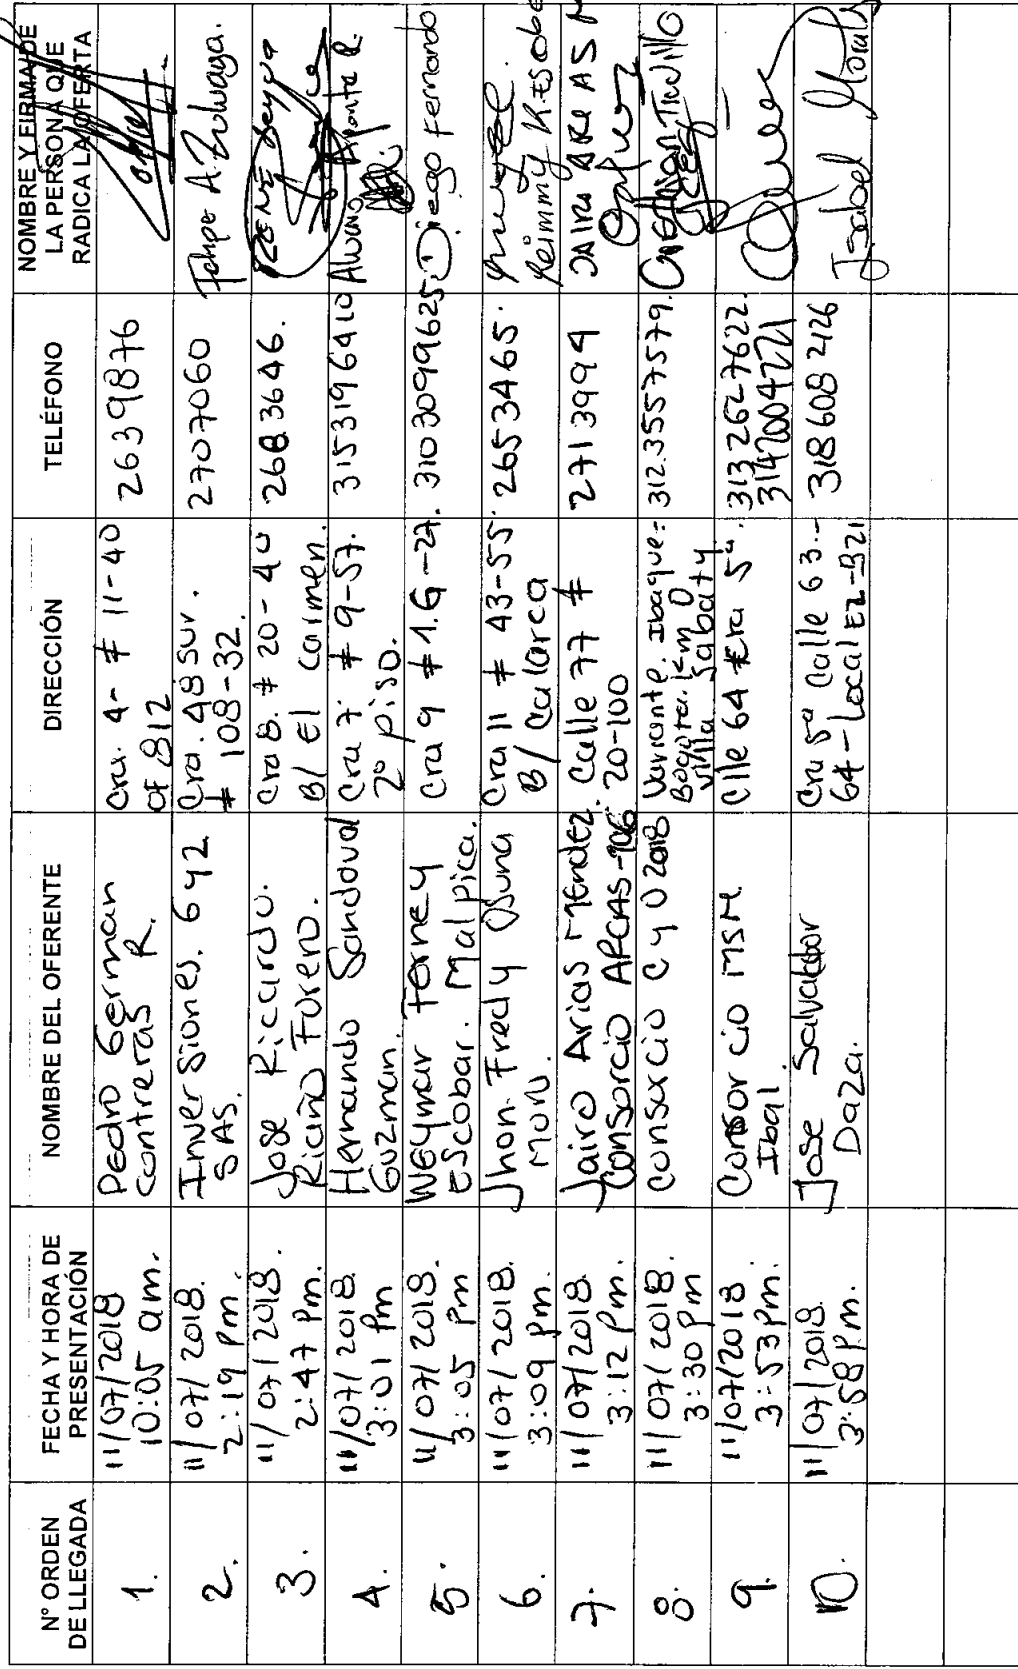 N° ORDEN
DE LLEGADA
FECHA Y HORA DE
PRESENTACIÓN
NOMBRE DEL OFERENTE
DIRECCIÓN
TELÉFONO
NOMBRE Y FIRMA DE
LA PERSONA QUE
RADICA LA OFERTA
1.
11/07/2018
10:05 am.
Pedro German
Contreras R.
Cra. 4- # 11-40
OF 812
2639876
2.
11/07/2018.
2:19 Pm.
Inversiones. 642
SAS.
Cra. 48 sur.
# 108-32.
2707060
Felipe A. Zuluaga.
3.
11/07/2018.
2:47 Pm.
Jose Ricardo.
Riaño Forero.
Cra 8. # 20-40
B/ El Carmen.
268 3646.
RENE
4.
11/07/2018.
3:01 Pm
Hernando Sandoval
Guzman.
Cra 7. # 9-57.
2° piso.
3153196410
Alvaro Aponte R.
5.
11/07/2018.
3:05 pm
Weymar Ferney
Escobar. Malpica.
Cra 9 #16-27.
3103099625.
Diego Fernando
6.
11/07/2018.
3:09 pm.
Jhon Fredy Osuna
Mon
Cra 11 # 43-55.
B/ Calarca
2653465.
Reimmy
7.
11/07/2018.
3:12 Pm.
Jairo Arias Mendez.
Consorcio
Calle 77 #
20-100
2713994
JAIRO ARIAS M
8.
11/07/2018
3:30 pm
Consorcio C y O 2018
Variante Ibague:
Bogota. Km 0
Villa
312.3557579.
Cristhian Trujillo
9.
11/07/2018
3:53 pm.
Consorcio MSM.
Ibal.
Clle 64 # Cra 5ª.
313 262 7622.
3142004221
10.
11/07/2018.
3:58 Pm.
Jose Salvador
Daza.
Cra 5ª Calle 63.-
64 - Local
318 608 2126
Isabel